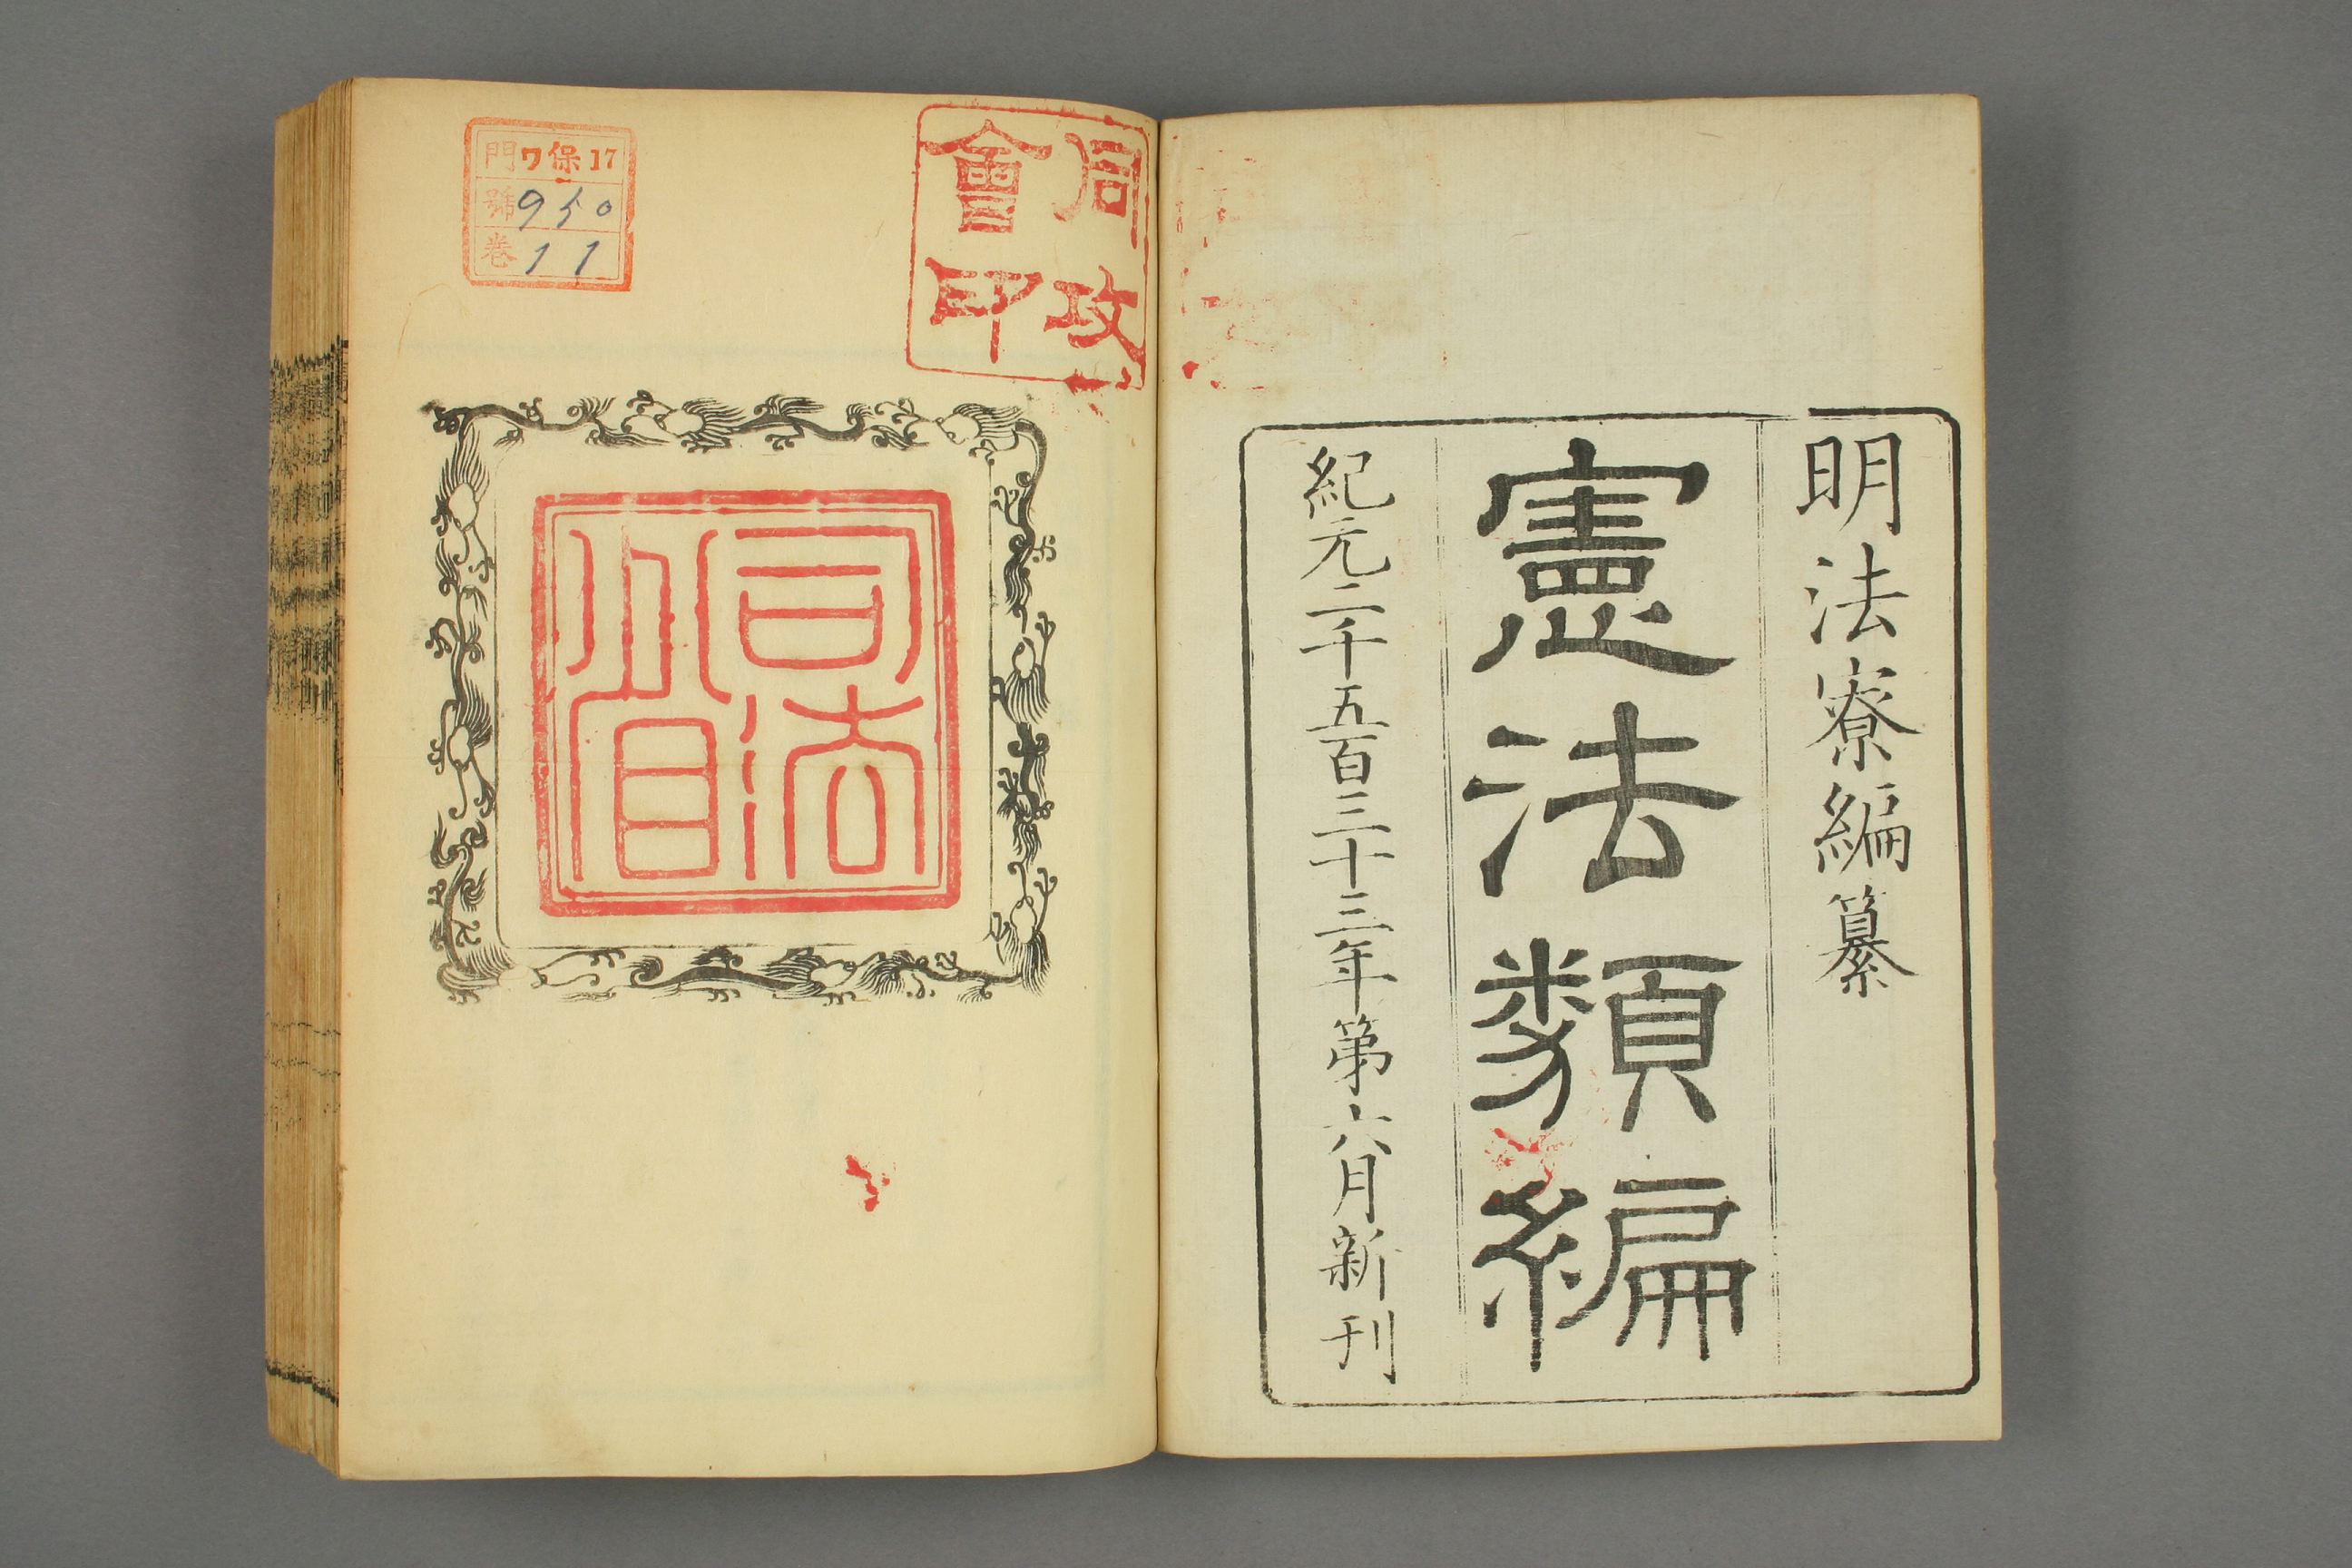 明法寮編纂
憲法類編
紀元二千五百三十三年第六月新刊
同攻
會印
司法
省
門ワ保17
號950
卷11